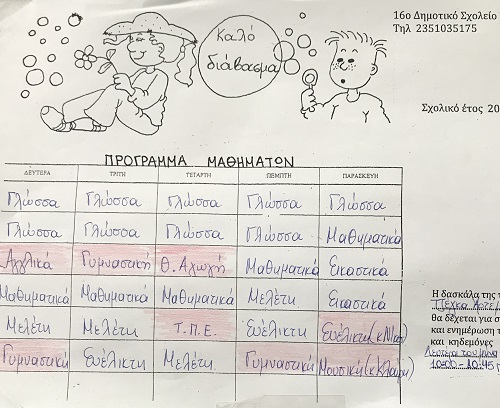 16ο Δημοτικό Σχολείο
Τηλ 2351035175
καλό
διάβασμα
Σχολικό έτος 20
ΠΡΟΓΡΑΜΜΑ ΜΑΘΗΜΑΤΩΝ
ΔΕΥΤΕΡΑ ΤΡΙΤΗ ΤΕΤΑΡΤΗ ΠΕΜΠΤΗ ΠΑΡΑΣΚΕΥΗ
Γλώσσα Γλώσσα Γλώσσα Γλώσσα Γλώσσα
Γλώσσα Γλώσσα Γλώσσα Γλώσσα Μαθηματικά
Αγγλικά Γυμναστική Θ. Αγωγή Μαθηματικά Εικαστικά
Μαθηματικά Μαθηματικά Μαθηματικά Μελέτη Εικαστικά
Μελέτη Μελέτη Τ.Π.Ε. Ευέλικτη Ευέλικτη
Γυμναστική Ευέλικτη Μελέτη Γυμναστική Μουσική
Η δασκάλα της τ
θα δέχεται για σ
και ενημέρωση τ
και κηδεμόνες
10:00 - 10:45